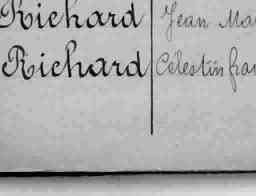 Richard Jean Ma
Richard Célestin fran